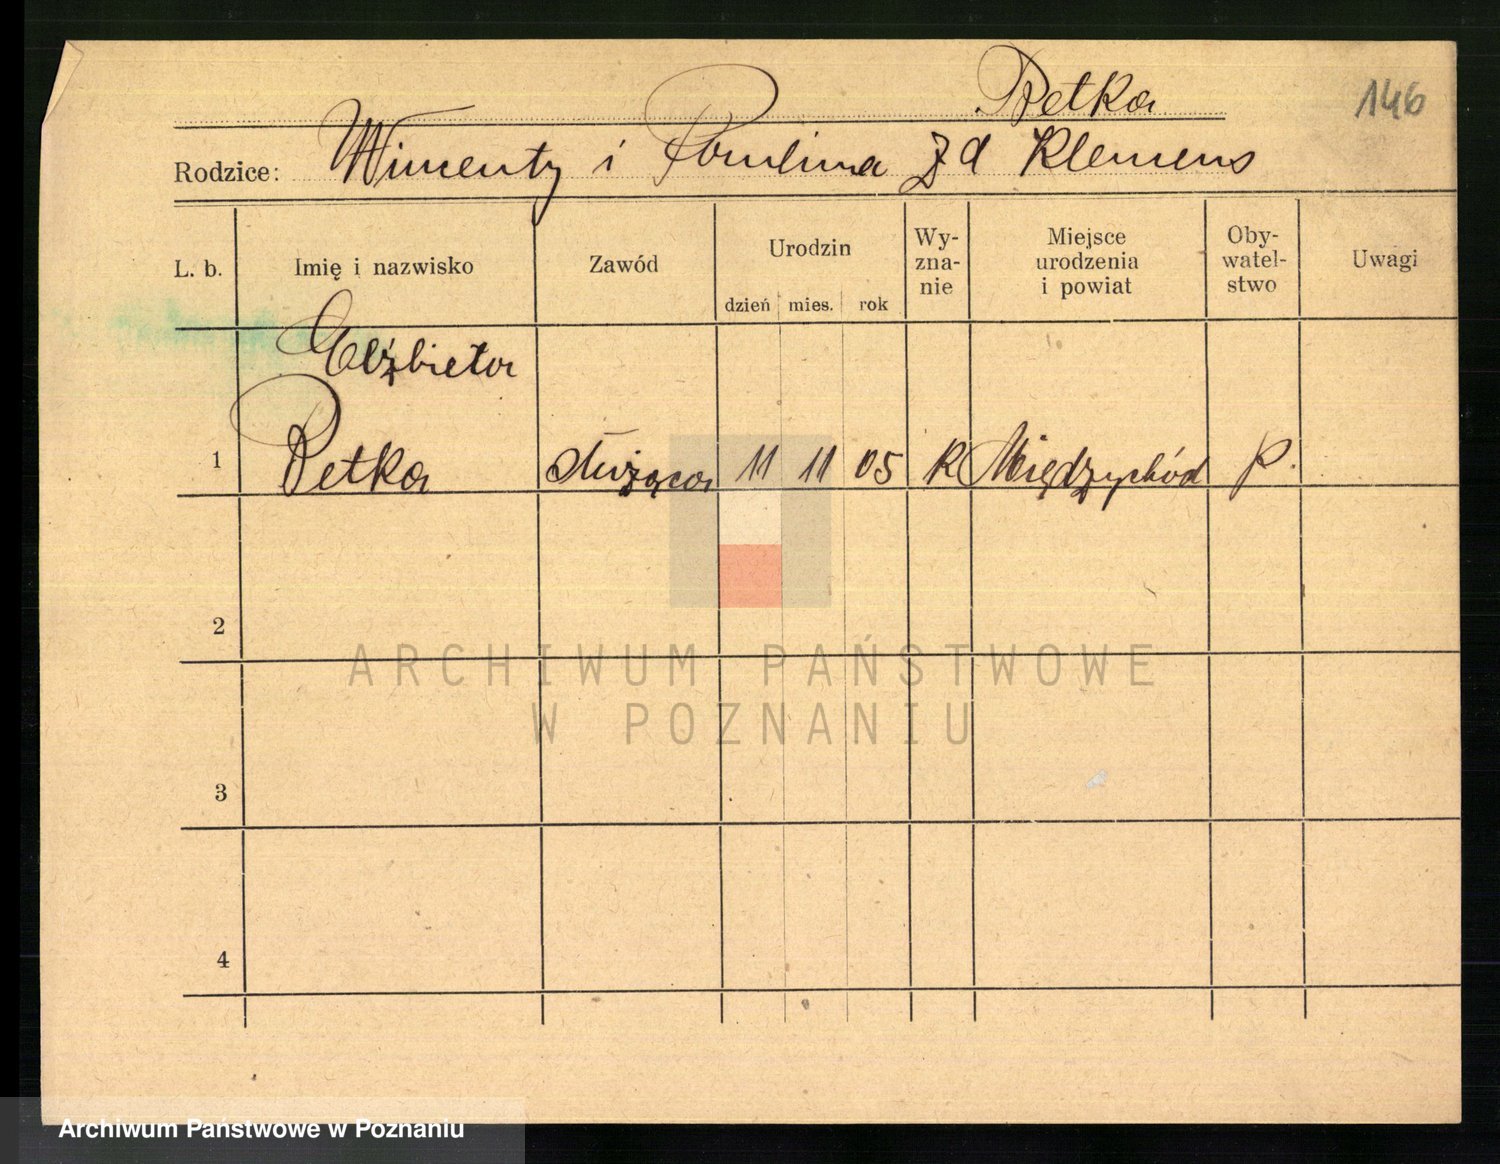 Petka
146
Rodzice: Wincenty i Paulina z d Klemens
L. b. Imię i nazwisko Zawód Urodzin dzień mies. rok Wy-zna-nie Miejsce urodzenia i powiat Oby-watel-stwo Uwagi
Elżbieta
1 Petka służąca 11 11 05 R Międzychód P.
2
3
4
ARCHIWUM PAŃSTWOWE
W POZNANIU
Archiwum Państwowe w Poznaniu